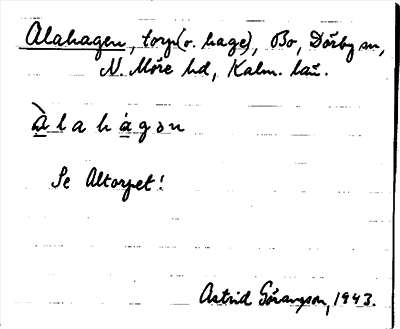 Alahagen, torp (o. hage), Bo, Dörby sn,
N. Möre hd, Kalm. län.
àlahágən
Se Altorpet!
Astrid Göransson, 1943.